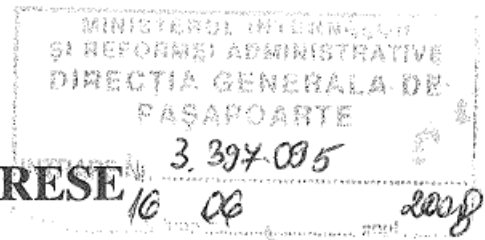 MINISTERUL INTERNELOR
ȘI REFORMEI ADMINISTRATIVE
DIRECȚIA GENERALĂ DE
PAȘAPOARTE
INTRARE Nr. 3.397.095
RESE
16 06 2008